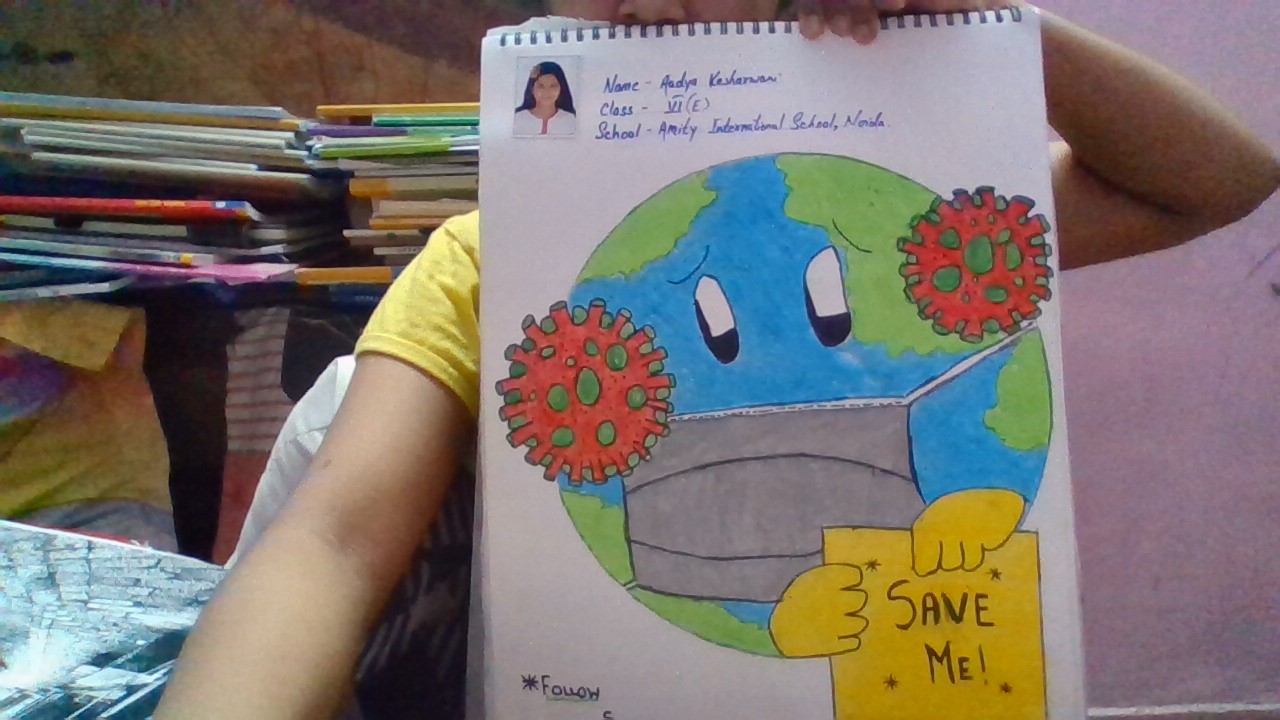 Name - Aadya Kesharwani
Class - VI (E)
School - Amity International School, Noida.
* SAVE *
ME!
* *
*FOLLOW
S